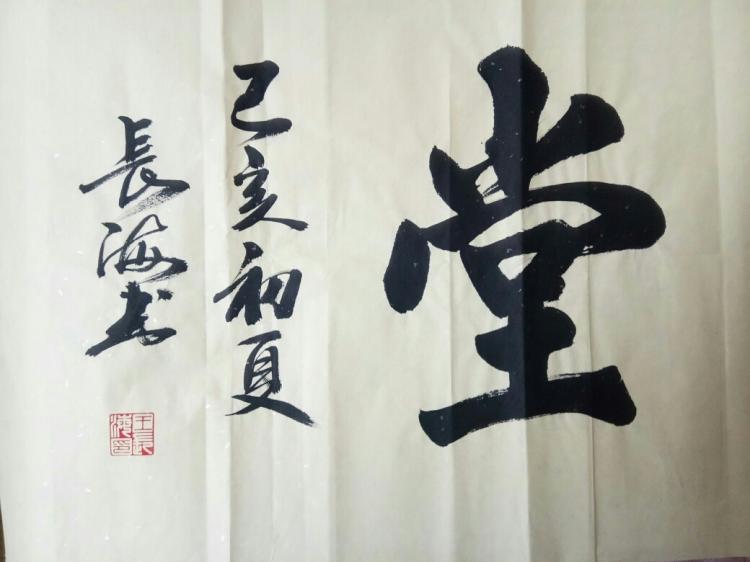 堂
己亥初夏
長海书
王長海印